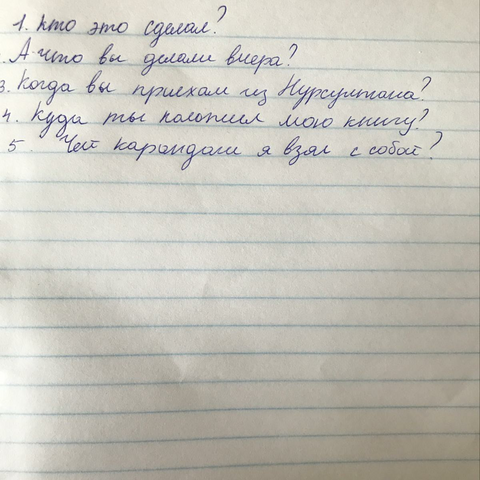 1. Кто это сделал?
. А что вы делали вчера?
3. Когда вы приехали из Нурсултана?
4. Куда ты положил мою книгу?
5. Чей карандаш я взял с собой?